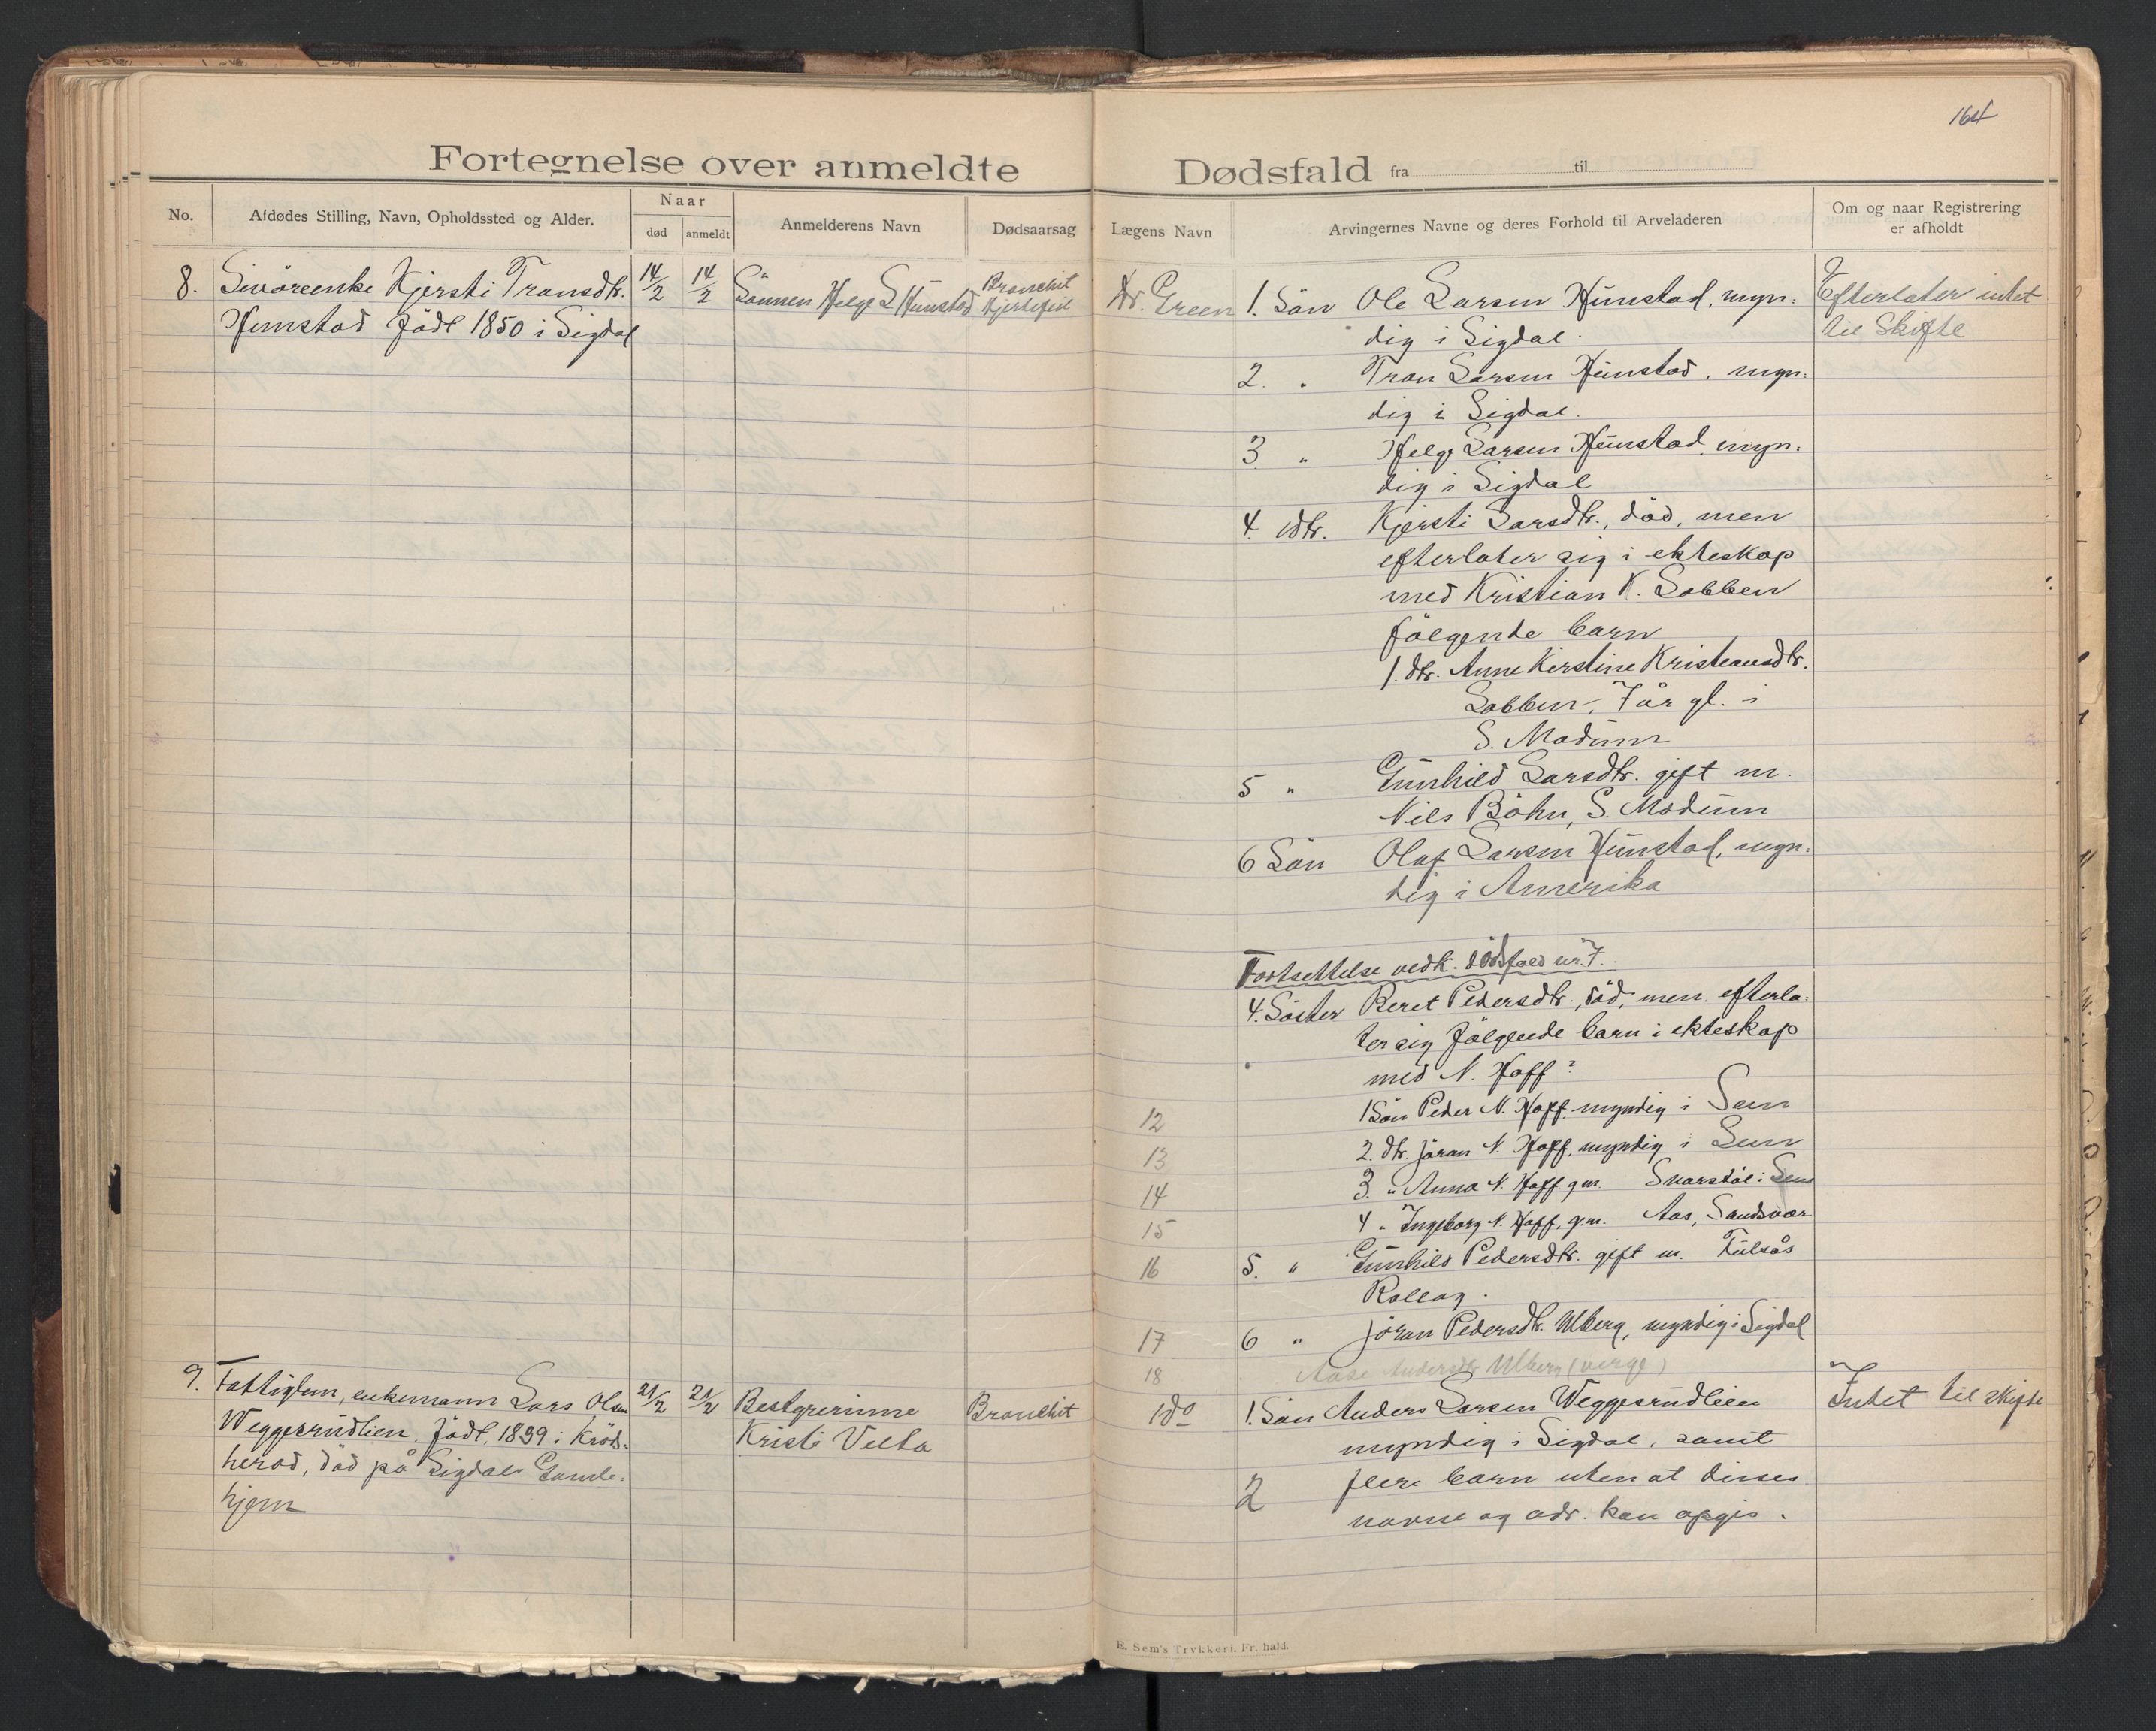 164
Fortegnelse over anmeldte Dødsfald fra til
No.
Afdødes Stilling, Navn, Opholdssted og Alder.
Naar
død
anmeldt
Anmelderens Navn
Dødsaarsag
Lægens Navn
Arvingernes Navne og deres Forhold til Arveladeren
Om og naar Registrering
er afholdt
8. Kjersti Transdtr.
Hunstad födt 1850 i Sigdal
14/2
14/2
Sönnen Helge L Hunstad
Bronchit
Hjertefeil
Dr. Green
1. Sön Ole Larsen Hunstad, myn-
dig i Sigdal.
2. " Tran Larsen Hunstad, myn-
dig i Sigdal.
3 " Helge Larsen Hunstad, myn-
dig i Sigdal
4. dtr. Kjersti Larsdtr., död, men
efterlater sig i ekteskap
med Kristian K. Lobben
fölgende barn
1. dtr. Anne Kirstine Kristiansdtr.
Lobben, 7 år gl. i
S. Modum
5 " Gunhild Larsdtr. gift m.
Nils Böhn, S. Modum
6 Sön Olaf Larsen Hunstad, myn-
dig i Amerika
Efterlater intet
til Skifte
Fortsettelse vedk. dödsfald nr. 7.
4. Söster Beret Pedersdtr., död, men efterla-
ter sig fölgende barn i ekteskap
med N. Hoff:
12 1 Sön Peder N. Hoff, myndig i Sem
13 2. dtr. Jöran N. Hoff, myndig i Sem
14 3. " Anna N. Hoff g.m. i Sem
15 4 " Ingeborg N. Hoff, g.m. Aas, Sandsvær
16 5. " Gunhild Pedersdtr. gift m.
Rollag.
17 6 " Jöran Pedersdtr. Ulberg, myndig i Sigdal
18 Aase Andersdtr Ulberg (verge)
9. Fattiglem, enkemann Lars Olsen
Weggesrudlien, födt 1839 i Kröds-
herad, död på Sigdals Gamle-
hjem
21/2
21/2
Bestyrerinne
Kristi Velta
Bronchit
do
1. Sön Anders Larsen Weggesrudlien
myndig i Sigdal, samt
2 flere barn uten at disses
navne og adr. kan opgis.
Intet til skifte
E. Sem's Trykkeri, Fr. hald.